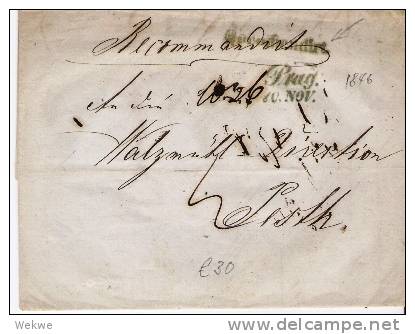 Recommandirt
Recommandirt
Prag
10. NOV.
1846
An die
Walzmühl Direction
Pesth.
£30
Wekwe
delcampe.net